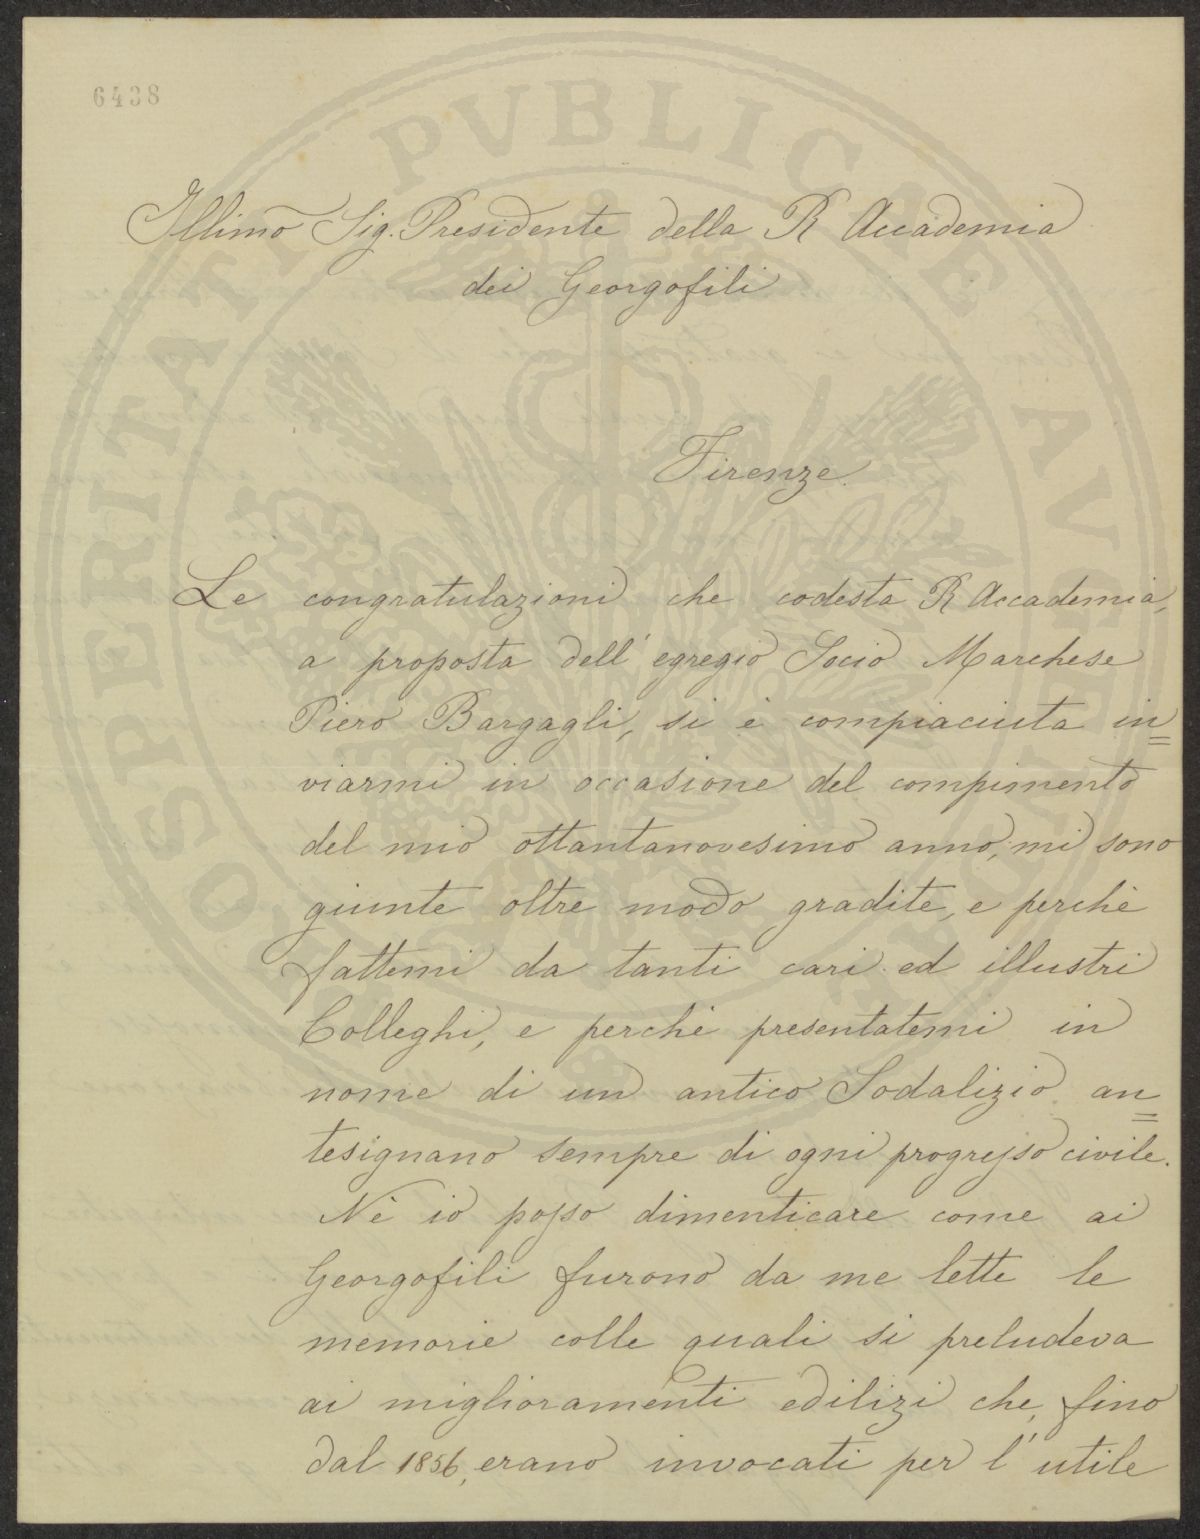 6438
PROSPERITATI PVBLICAE AVGENDAE
Illimo Sig. Presidente della R Accademia
dei Georgofili
Firenze.
Le congratulazioni che codesta R Accademia,
a proposta dell' egregio Socio Marchese
Piero Bargagli, si è compiaciuta in=
viarmi in occasione del compimento
del mio ottantanovesimo anno, mi sono
giunte oltre modo gradite, e perchè
fattemi da tanti cari ed illustri
Colleghi, e perchè presentatemi in
nome di un antico Sodalizio an=
tesignano sempre di ogni progresso civile.
Nè io posso dimenticare come ai
Georgofili furono da me lette le
memorie colle quali si preludeva
ai miglioramenti edilizi che, fino
dal 1856, erano invocati per l' utile